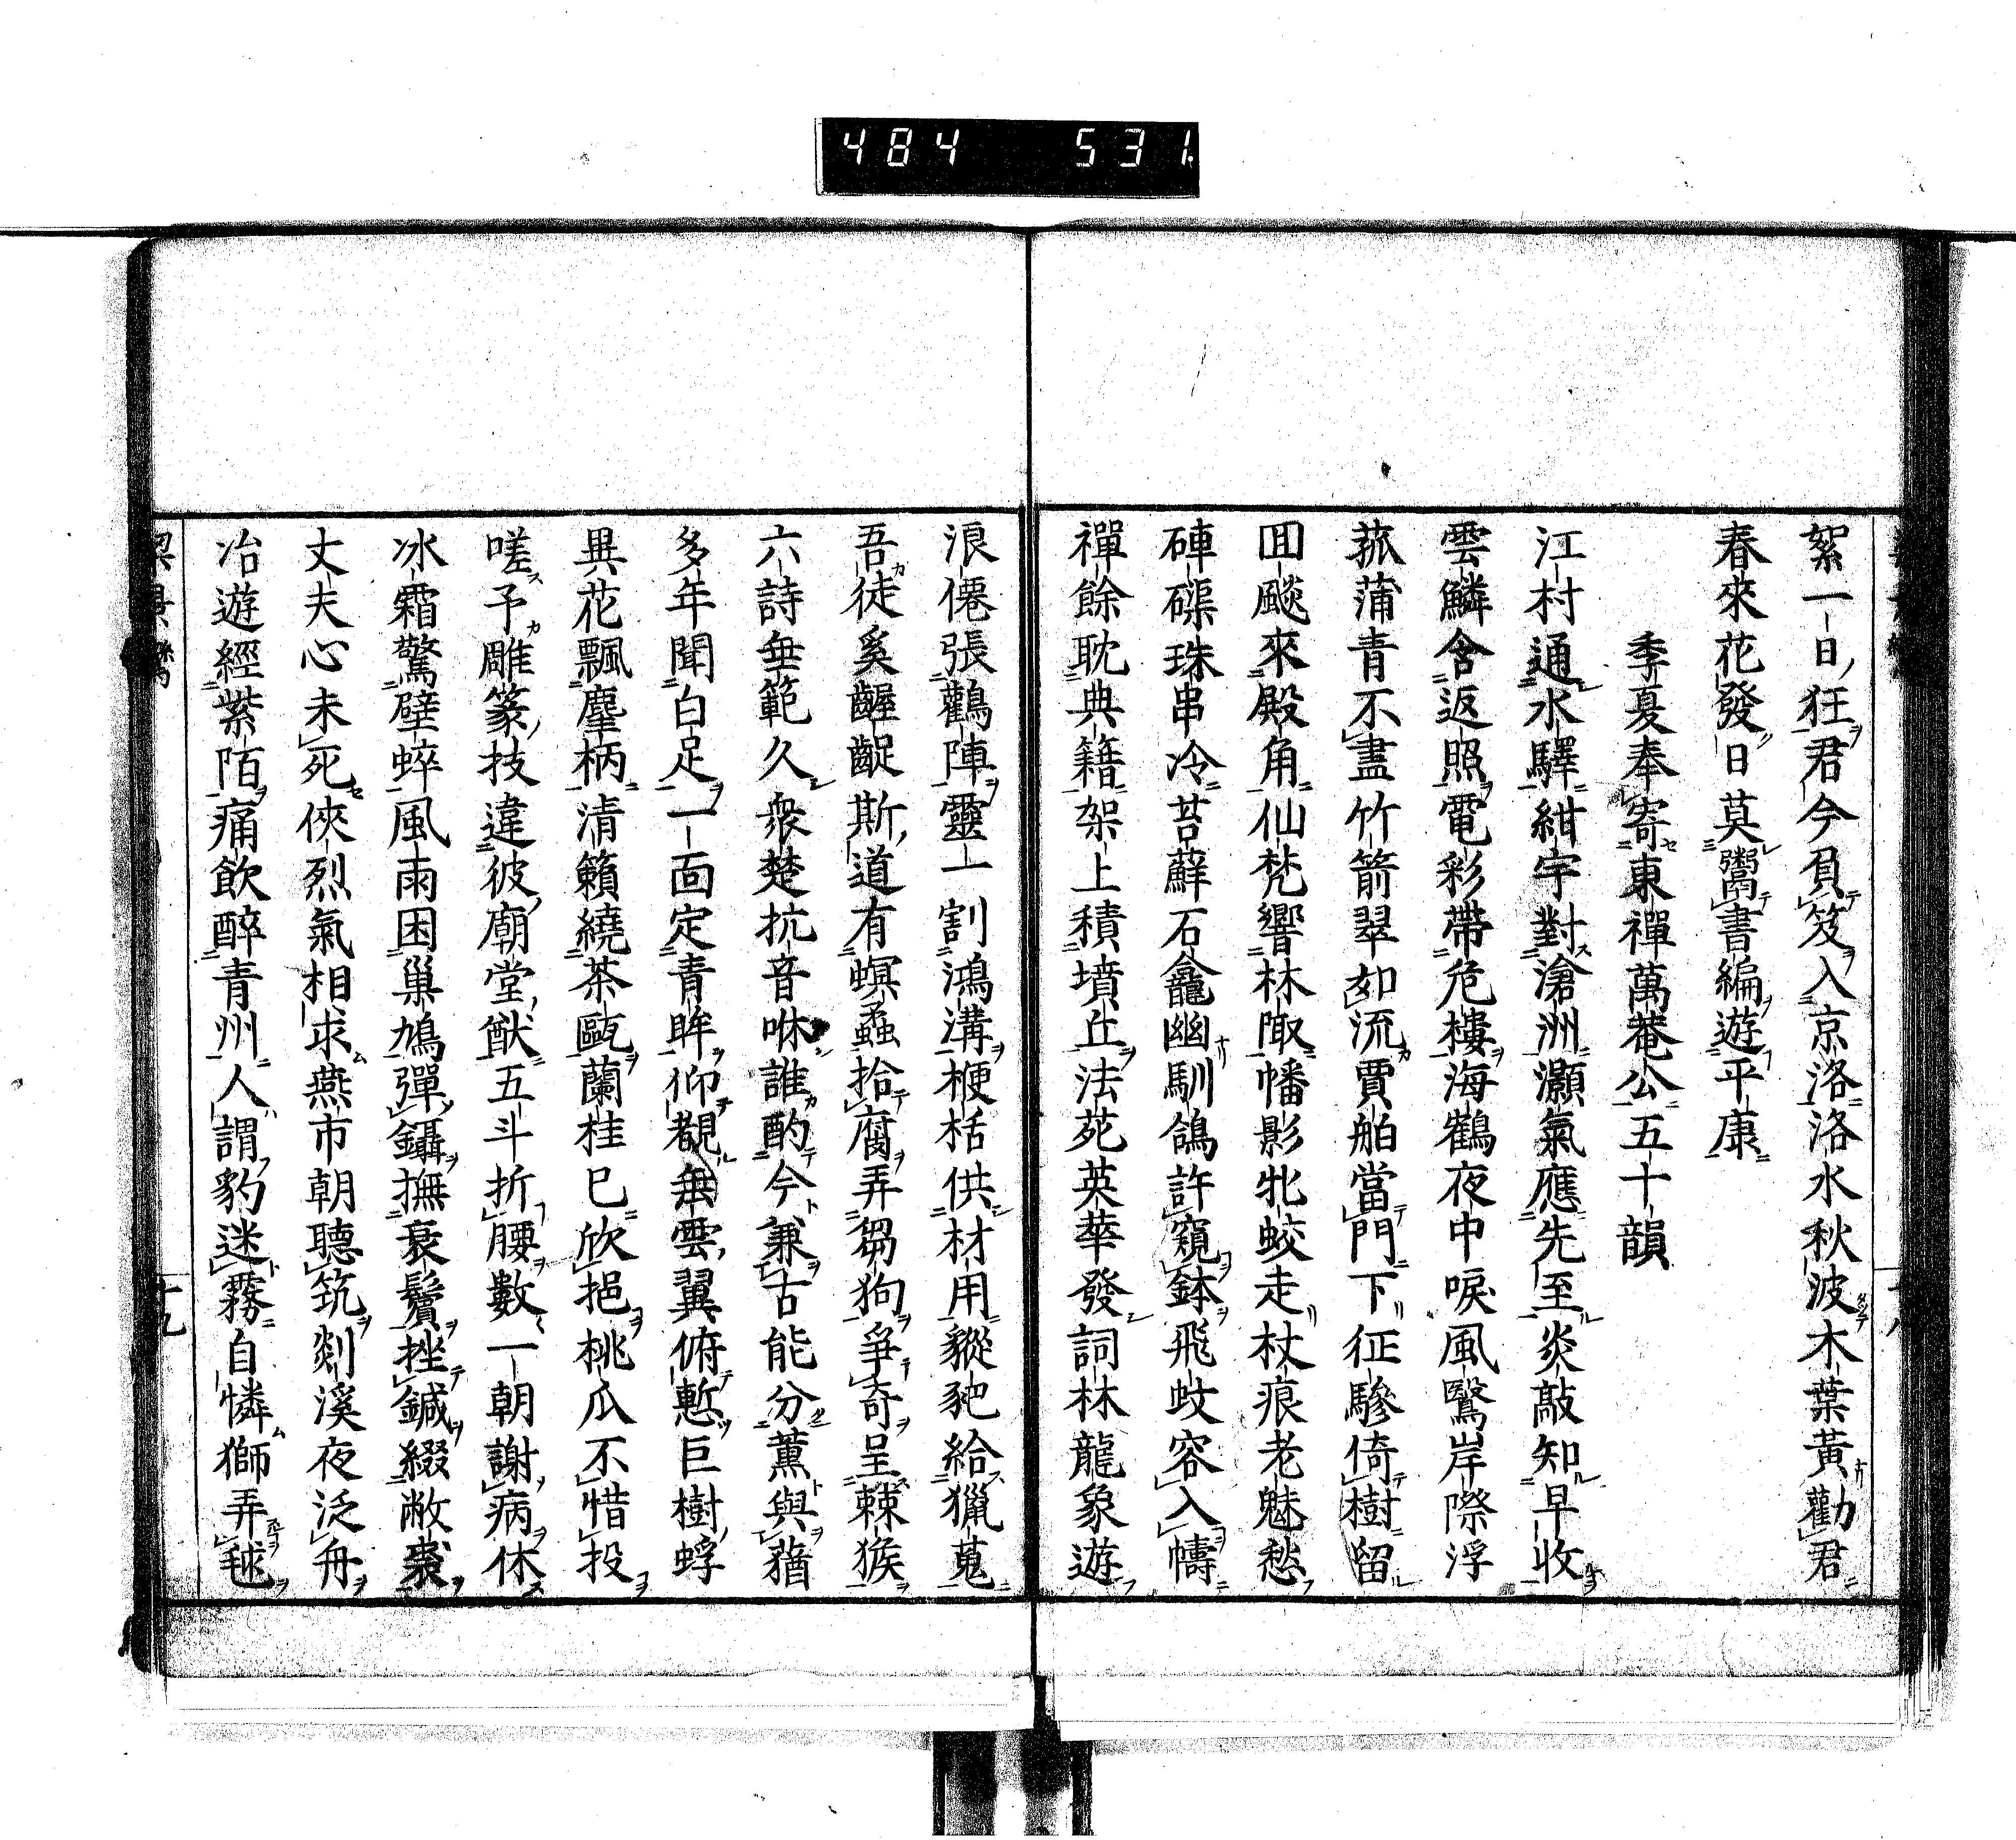 484 531
絮一日狂君今負笈入京洛洛水秋波木葉黃勸君
春來花發日莫鬻書編遊平康
季夏奉寄東禪萬菴公五十韻
江村通水驛紺宇對滄洲灝氣應先至炎敲知早收
雲鱗含返照電彩帶危樓海鶴夜中唳風鷖岸際浮
菰蒲青不盡竹箭翠如流賈舶當門下征驂倚樹留
囬颷來殿角仙梵響林陬幡影牝蛟走杖痕老魅愁
硨磲珠串冷苔蘚石龕幽馴鴿許窺鉢飛蚊容入幬
禪餘耽典籍架上積墳丘法苑英華發詞林龍象遊
浪僊張鸛陣靈一割鴻溝梗栝供材用豵豝給獵蒐
吾徒奚齷齪斯道有螟蟊拾腐弄芻狗爭奇呈棘猴
六詩垂範久衆楚抗音咻誰酌今兼古能分薰與蕕
多年聞白足一面定青眸仰覩無雲翼俯慙巨樹蜉
異花飄麈柄清籟繞茶甌蘭桂已欣挹桃瓜不惜投
嗟予雕篆技違彼廟堂猷五斗折腰數一朝謝病休
冰霜驚壁蟀風雨困巢鳩彈鑷撫衰鬢挫鍼綴敝裘
丈夫心未死俠烈氣相求燕市朝聽筑剡溪夜泛舟
冶遊經紫陌痛飲醉青州人謂豹迷霧自憐獅弄毬
十九